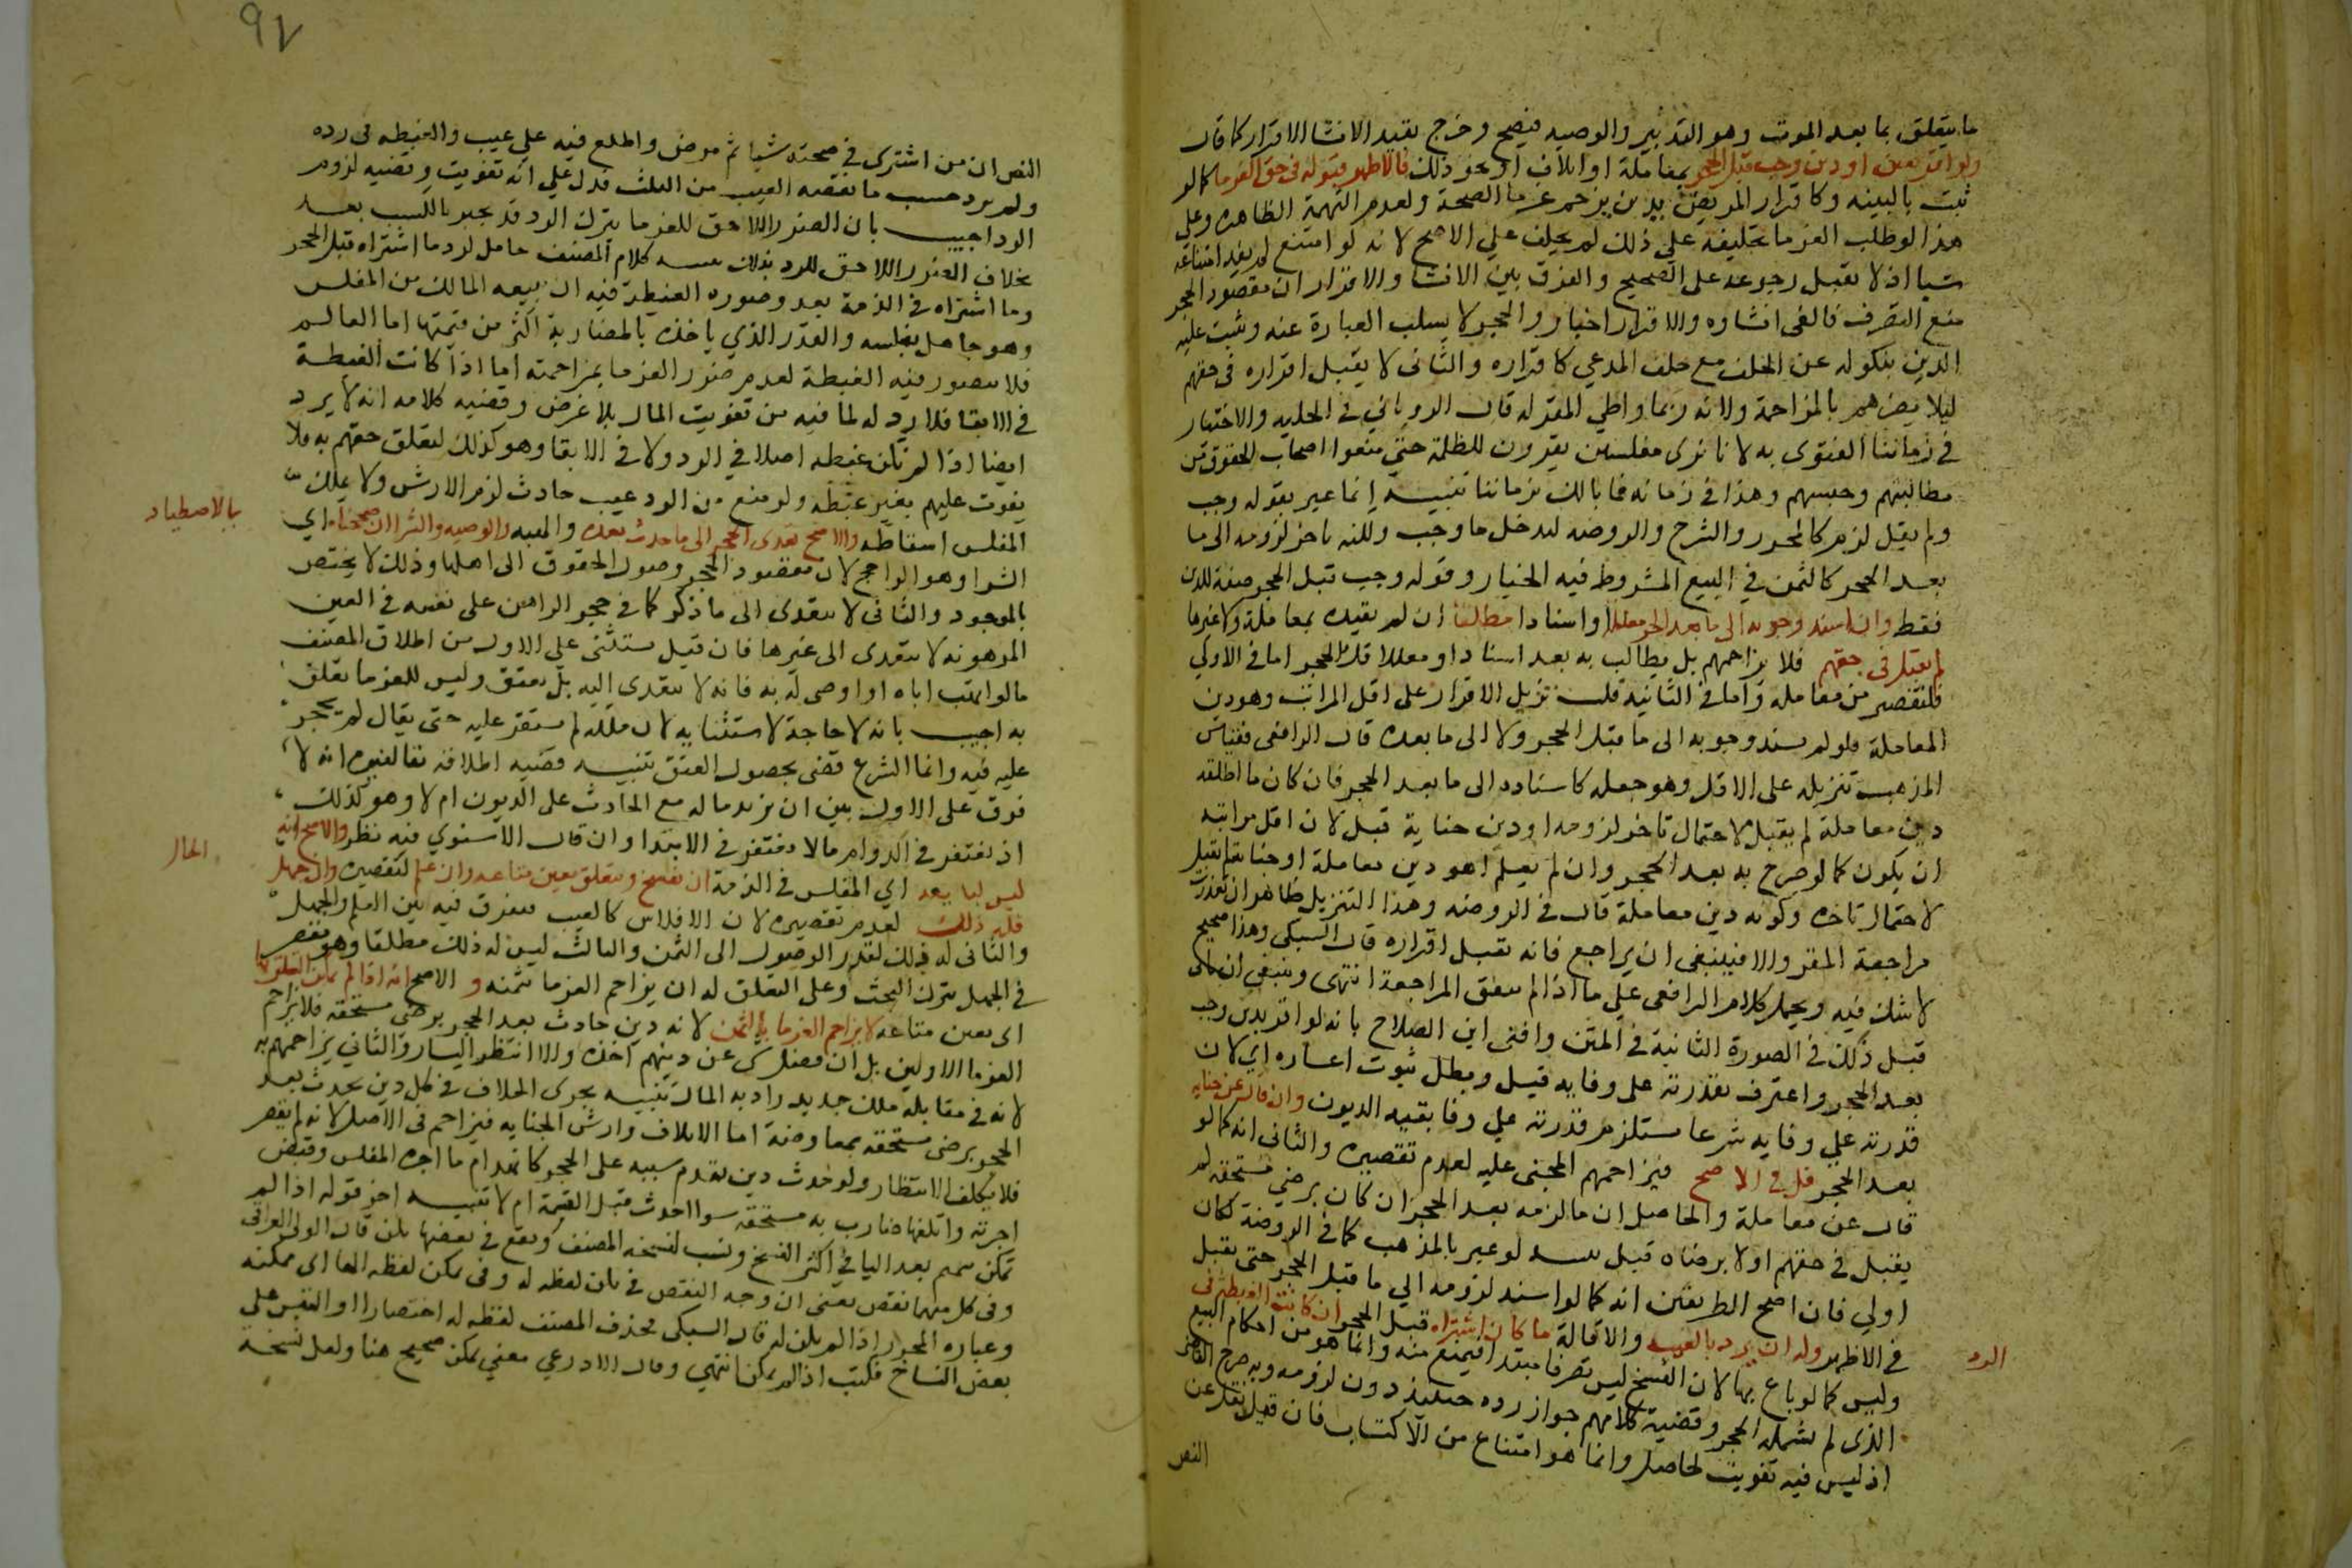 ما يتعلق بما بعد الموت وهو التدبير والوصيه فيصح وخرج بقيد الانشا الاقرار كما قال
ولو اقر بعين او دين وجب قبل الحجر بمعاملة او اتلاف او نحو ذلك فالاظهر قبوله في حق الغرما كما لو
ثبت بالبينه وكاقرار المريض بدين يزحم غرما الصحة ولعدم التهمة الظاهره وعلى
هذا لو طلب الغرما تحليفه على ذلك لم يحلف على الاصح لانه لو امتنع لم يفد امتناعه
شيا اذ لا يقبل رجوعه على الصحيح والفرق بين الانشا والاقرار ان مقصود الحجر
منع التصرف فالغى انشاوه والاقرار اخبار والحجر لا يسلب العبارة عنه ويثبت عليه
الدين بنكوله عن الحلف مع حلف المدعي كاقراره والثانى لا يقبل اقراره في حقهم
ليلا يضرهم بالمزاحمة ولانه ربما واطي المقر له قال الروياني في الحليه والاختيار
في زماننا الفتوى به لانا نرى مفلسين يقرون للظلمة حتى منعوا اصحاب الحقوق من
مطالبتهم وحبسهم وهذا في زمانه فما بالك بزماننا تنبيه انما عبر بقوله وجب
ولم يقل لزم كالمحرر والشرح والروضه ليدخل ما وجب ولكنه تاخر لزومه الى ما
بعد الحجر كالثمن في البيع المشروط فيه الخيار وقوله وجب قبل الحجر صفة للدين
فقط وان اسند وجوبه الى ما بعد الحجر معللا او اسنادا مطلقا ان لم يقيده بمعاملة ولا غيرها
لم يقبل في حقهم فلا يزاحمهم بل يطالب به بعد اسنادا ومعللا فك الحجر اما في الاولي
فلتقصير من معامله واما في الثانية فلـ تنزيل الاقرار على اقل المراتب وهو دين
المعاملة فلو لم يسند وجوبه الى ما قبل الحجر ولا الى ما بعده قال الرافعى فقياس
المذهب تنزيله على الاقل وهو جعله كاسناده الى ما بعد الحجر فان كان ما اطلقه
دين معاملة لم يقبل لاحتمال تاخر لزومه او دين جناية قبل لان اقل مراتبه
ان يكون كما لو صرح به بعد الحجر وان لم يعلم اهو دين معاملة او جناية لم يقبل
لاحتمال تاخره وكونه دين معاملة قال في الروضه وهذا التنزيل ظاهر ان تعذرت
مراجعة المقر والا فينبغى ان يراجع فانه يقبل اقراره قال السبكى وهذا صحيح
لا شك فيه ويحمل كلام الرافعى على ما اذا لم يتفق المراجعة انتهى وينبغى ان ياتى
قبل ذلك في الصورة الثانية في المتن وافتى ابن الصلاح بانه لو اقر بدين وجب
بعد الحجر واعترف بقدرته على وفايه قبل وبطل ثبوت اعساره اي لان
قدرته علي وفايه شرعا يستلزم قدرته علي وفا بقيه الديون وان قال عن جنايه
بعد الحجر قبل في الاصح فيزاحمهم المجنى عليه لعدم تقصيره والثانى انه كما لو
قال عن معاملة والحاصل ان ما لزمه بعد الحجر ان كان برضي مستحقه لم
يقبل في حقهم او لا برضاه قبل تنبيه لو عبر بالمذهب كما في الروضة لكان
اولي فان اصح الطريقين انه كما لو اسند لزومه الي ما قبل الحجر حتى يقبل
في الاظهر وله ان يرد بالعيب والاقالة ما كان اشتراه قبل الحجر ان كانت الغبطة في
الرد
وليس كما لو باع بها لان الفسخ ليس تصرفا مبتدا فيمتنع منه وانما هو من احكام البيع
الذى لم يشمله الحجر وقضية كلامهم جواز رده حينيذ دون لزومه وبه صرح القاضى
اذ ليس فيه تفويت لحاصل وانما هو امتناع من الاكتساب فان قيل نقل عن
النص
٩٧
النص ان من اشترى في صحته شيا ثم مرض واطلع فيه على عيب والغبطه في رده
ولم يرد حسب ما نقصه العيب من الثلث فدل علي انه تفويت وقضيه لزوم
الرد اجيب بان الضرر اللاحق للغرما بترك الرد قد يجبر بالكسب بعد
بخلاف الضرر اللاحق للورثه بذلك تنبيه كلام المصنف حامل لرد ما اشتراه قبل الحجر
وما اشتراه في الذمة بعده وصوره الغبطة فيه ان يبيعه المالك من المفلس
وهو جاهل بفلسه والقدر الذي ياخذه بالمضاربة اكثر من قيمتها اما العالم
فلا يتصور فيه الغبطة لعدم ضرر الغرما بمزاحمته اما اذا كانت الغبطة
في الابقا فلا يرد له لما فيه من تفويت المال بلا غرض وقضيه كلامه انه لا يرد
ايضا اذا لم تكن غبطه اصلا في الرد ولا في الابقا وهو كذلك لتعلق حقهم به فلا
يفوت عليهم بغير غبطه ولو منع من الرد عيب حادث لزم الارش ولا يملك
المفلس اسقاطه والاصح تعدى الحجر الى ما حدث بعده والهبه والوصيه والشرا ان صححناه اي
بالاصطياد
الشرا وهو الراجح لان مقصود الحجر وصول الحقوق الى اهلها وذلك لا يختص
بالموجود والثانى لا يتعدى الى ما ذكر كما في حجر الراهن على نفسه في العين
المرهونه لا يتعدى الى غيرها فان قيل يستثنى علي الاول من اطلاق المصنف
ما لو اتهب اباه او اوصى له به فانه لا يتعدى اليه بل يعتق وليس للغرما تعلق
به اجيب بانه لا حاجة لاستثنايه لان ملكه لم يستقر عليه حتى يقال لم يحجر
عليه فيه وانما الشرع قضى بحصول العتق تنبيه قضيه اطلاقه تبعا لغيره انه لا
فرق على الاول بين ان يزيد ماله مع الحادث على الديون ام لا وهو كذلك
اذ يغتفر في الدوام ما لا يغتفر في الابتدا وان قال الاسنوي فيه نظر والاصح انه
ليس لبايعه اي المفلس في الذمة ان يفسخ ويتعلق بعين متاعه ان علم لتقصيره وان جهل
الحال
فله ذلك لعدم تقصيره لان الافلاس كالعيب فيفرق فيه بين العلم والجهل
والثانى له ذلك لتعذر الوصول الى الثمن والثالث ليس له ذلك مطلقا وهو مقصر
في الجهل بترك البحث وعلى التعلق له ان يزاحم الغرما بثمنه و الاصح انه اذا لم يمكن التعلق بها
اى بعين متاعه لا يزاحم الغرما بالثمن لانه دين حادث بعد الحجر برضى مستحقه فلا يزاحم
الغرما الاولين بل ان فضل شى عن دينهم اخذه والا انتظر اليسار والثاني يزاحمهم به
لانه في مقابلة ملك جديد زاد به المال تنبيه يجرى الخلاف في كل دين يحدث بعد
الحجر برضى مستحقه بمعاوضة اما الاتلاف وارش الجنايه فيزاحم في الاصل لانه لم يقصر
فلا يكلف الانتظار ولو حدث دين تقدم سببه على الحجر كانهدام ما اجره المفلس وقبض
اجرته واتلفها ضارب به مستحقه سوا احدث قبل القسمة ام لا تنبيه اخر قوله اذا لم
تمكن بميم بعد اليا في اكثر النسخ ونسب لنسخه المصنف ويقع في بعضها يكن قال الولى العراقى
وفى كل منهما نقص يعنى ان وجه النقص في يكن لفظه له وفى يمكن لفظه الها اى يمكنه
وعباره المحرر اذا لم يكن له قال السبكى فحذف المصنف لفظه له اختصارا او التبس على
بعض النساخ فكتب اذا لم يمكن انتهي وقال الاذرعي معني يمكن صحيح هنا ولعل نسخة